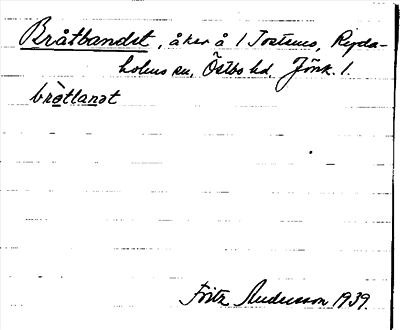 Bråtbandet, åker å 1 Tostens, Ryda-
holms sn, Östbo hd. Jönk. l.
bròtlanət
Fritz Andersson 1939.